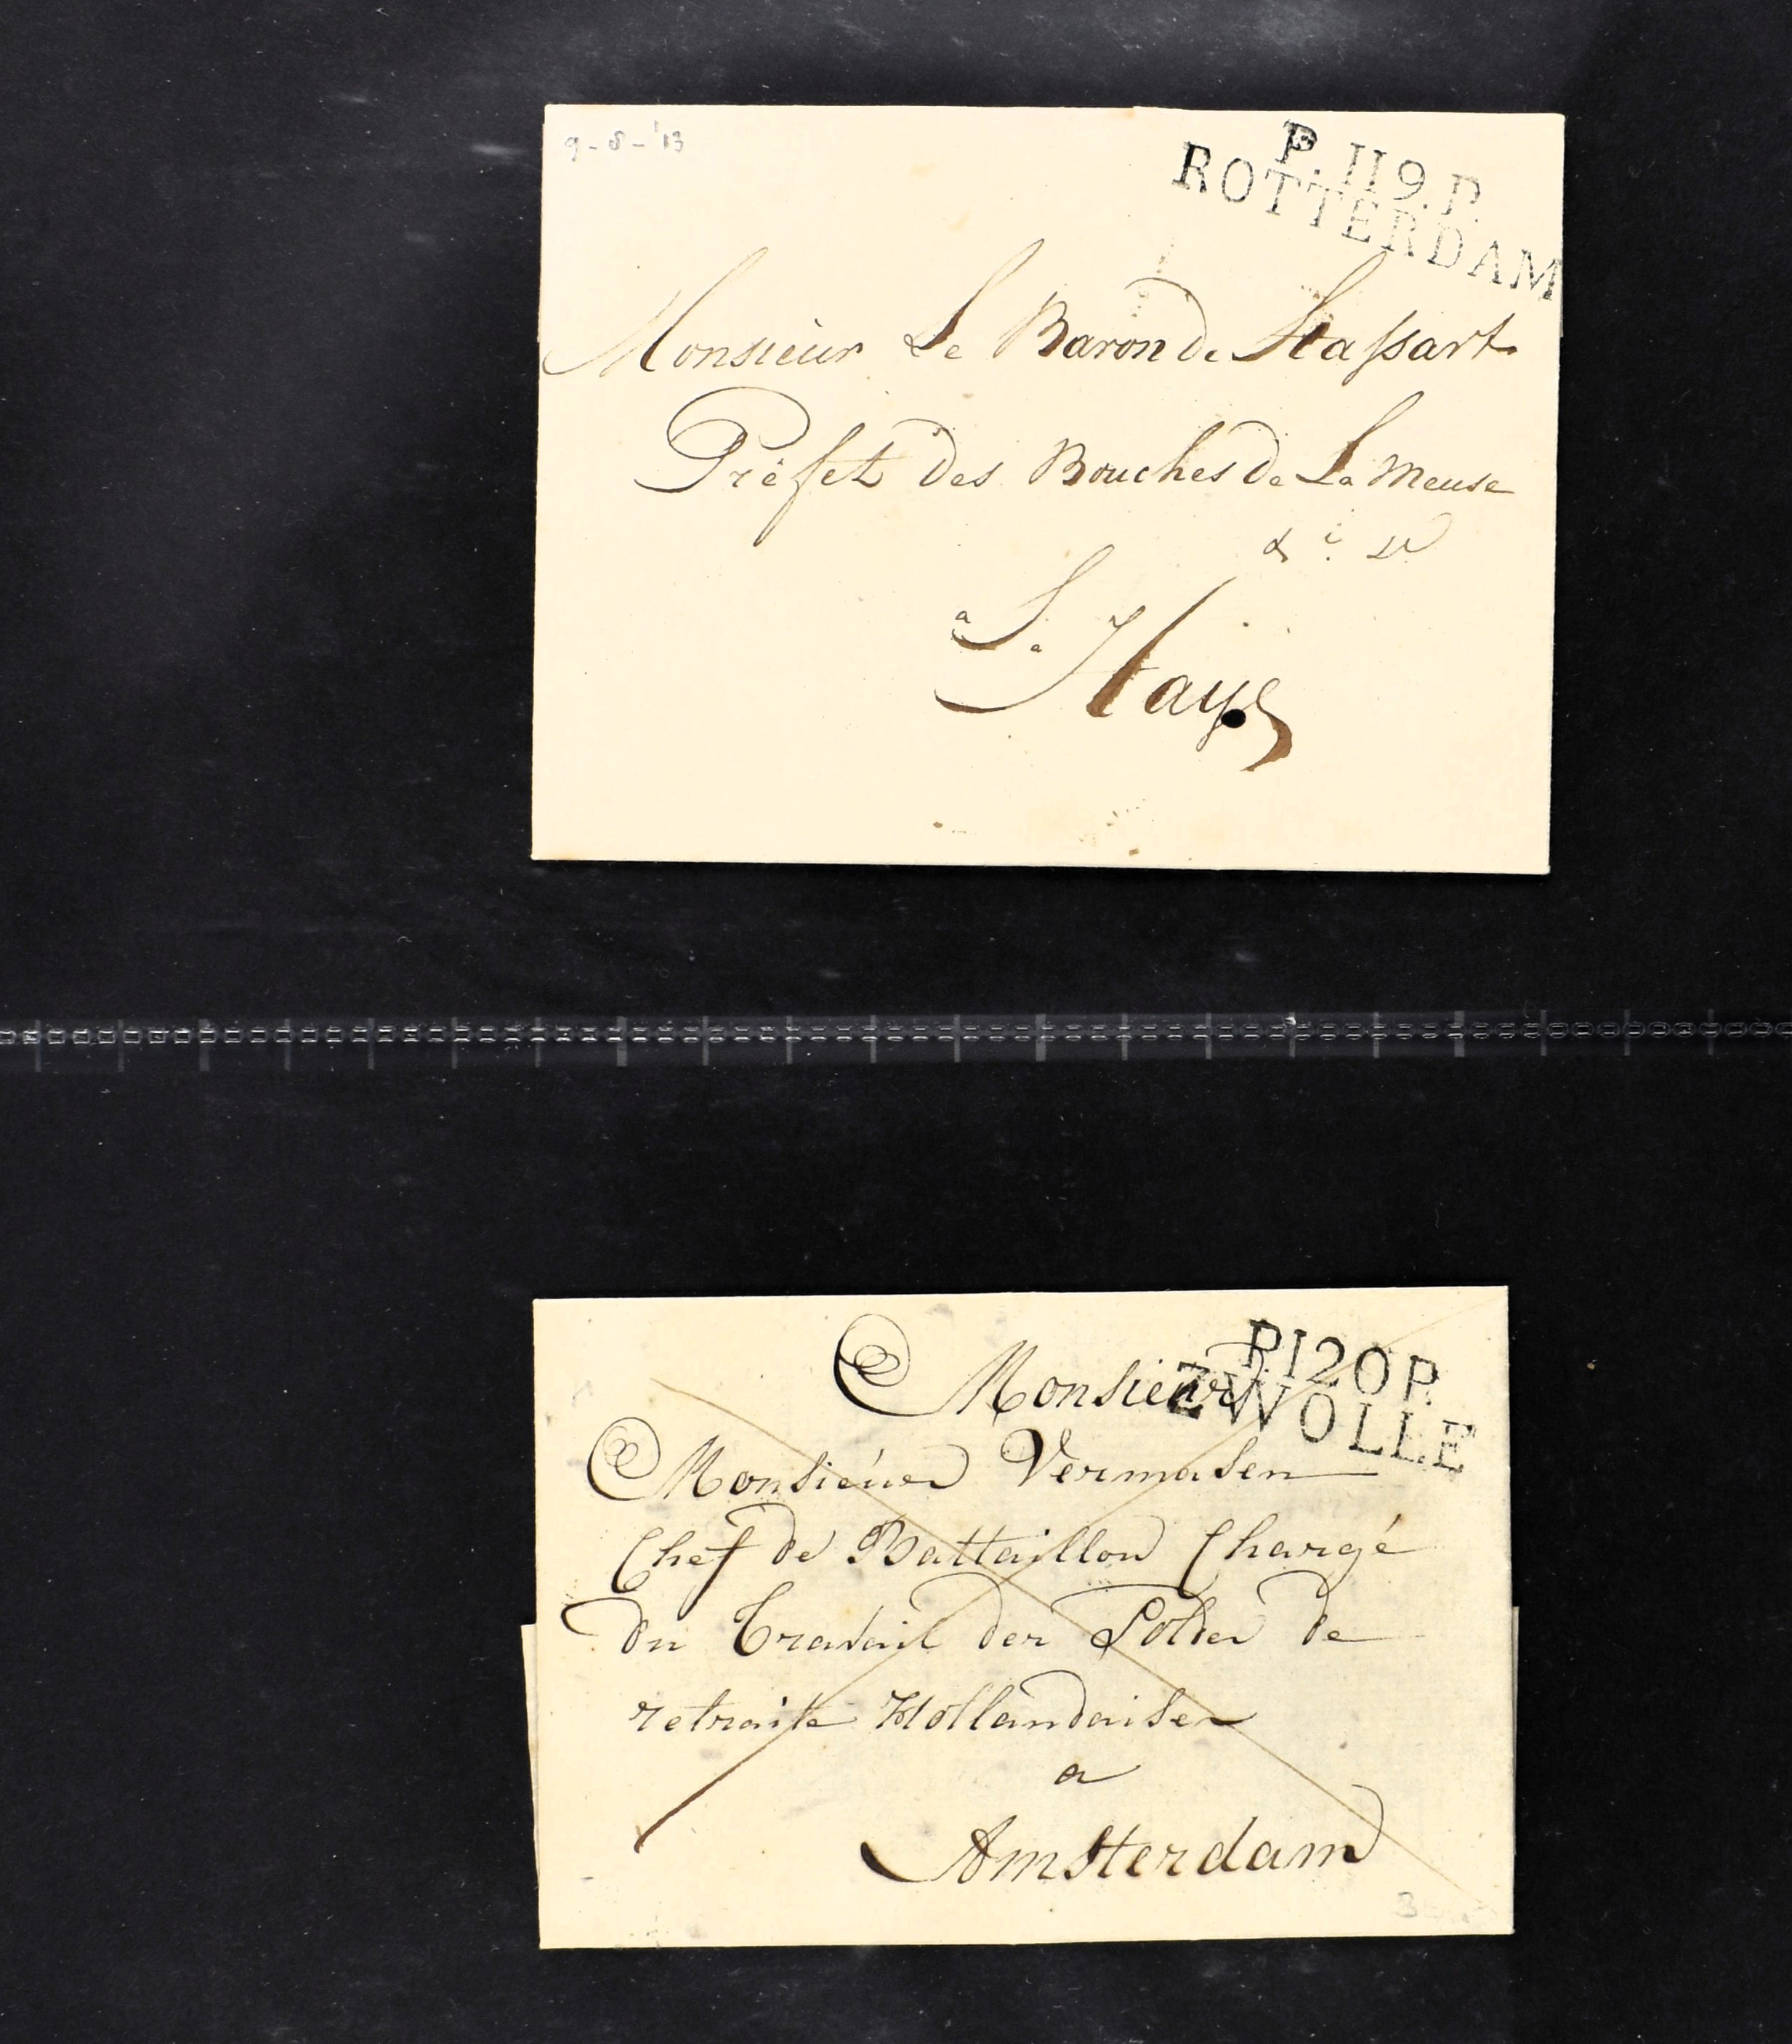 9-8-'13
P.119.P.
ROTTERDAM
Monsieur Le Baron de Stassart
Préfet des Bouches de La Meuse
a La Haye
P.120P.
ZWOLLE
Monsieur
Monsieur Vermasen
Chef de Battaillon Chargé
du Travail des Soldes de
retraite Hollandaises
a
Amsterdam